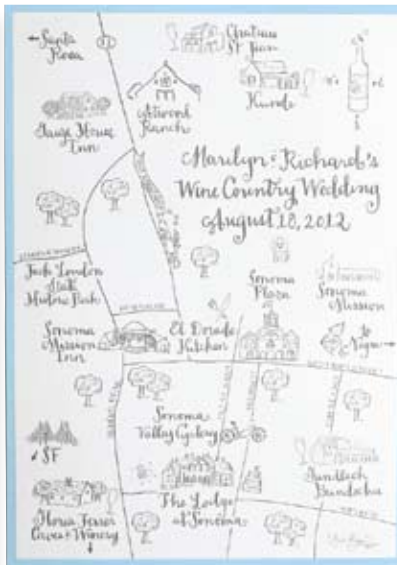 Santa
Rosa
12
Chateau
St Jean
Kunde
Atwood
Ranch
Gaige House
Inn
Marilyn & Richard's
Wine Country Wedding
August 18, 2012
Jack London
State
Historic Park
Sonoma
Plaza
Sonoma
Mission
Sonoma
Mission
Inn
El Dorado
Kitchen
to
Napa
Sonoma
Valley Cyclery
SF
The Lodge
at Sonoma
Gundlach
Bundschu
Gloria Ferrer
Caves & Winery